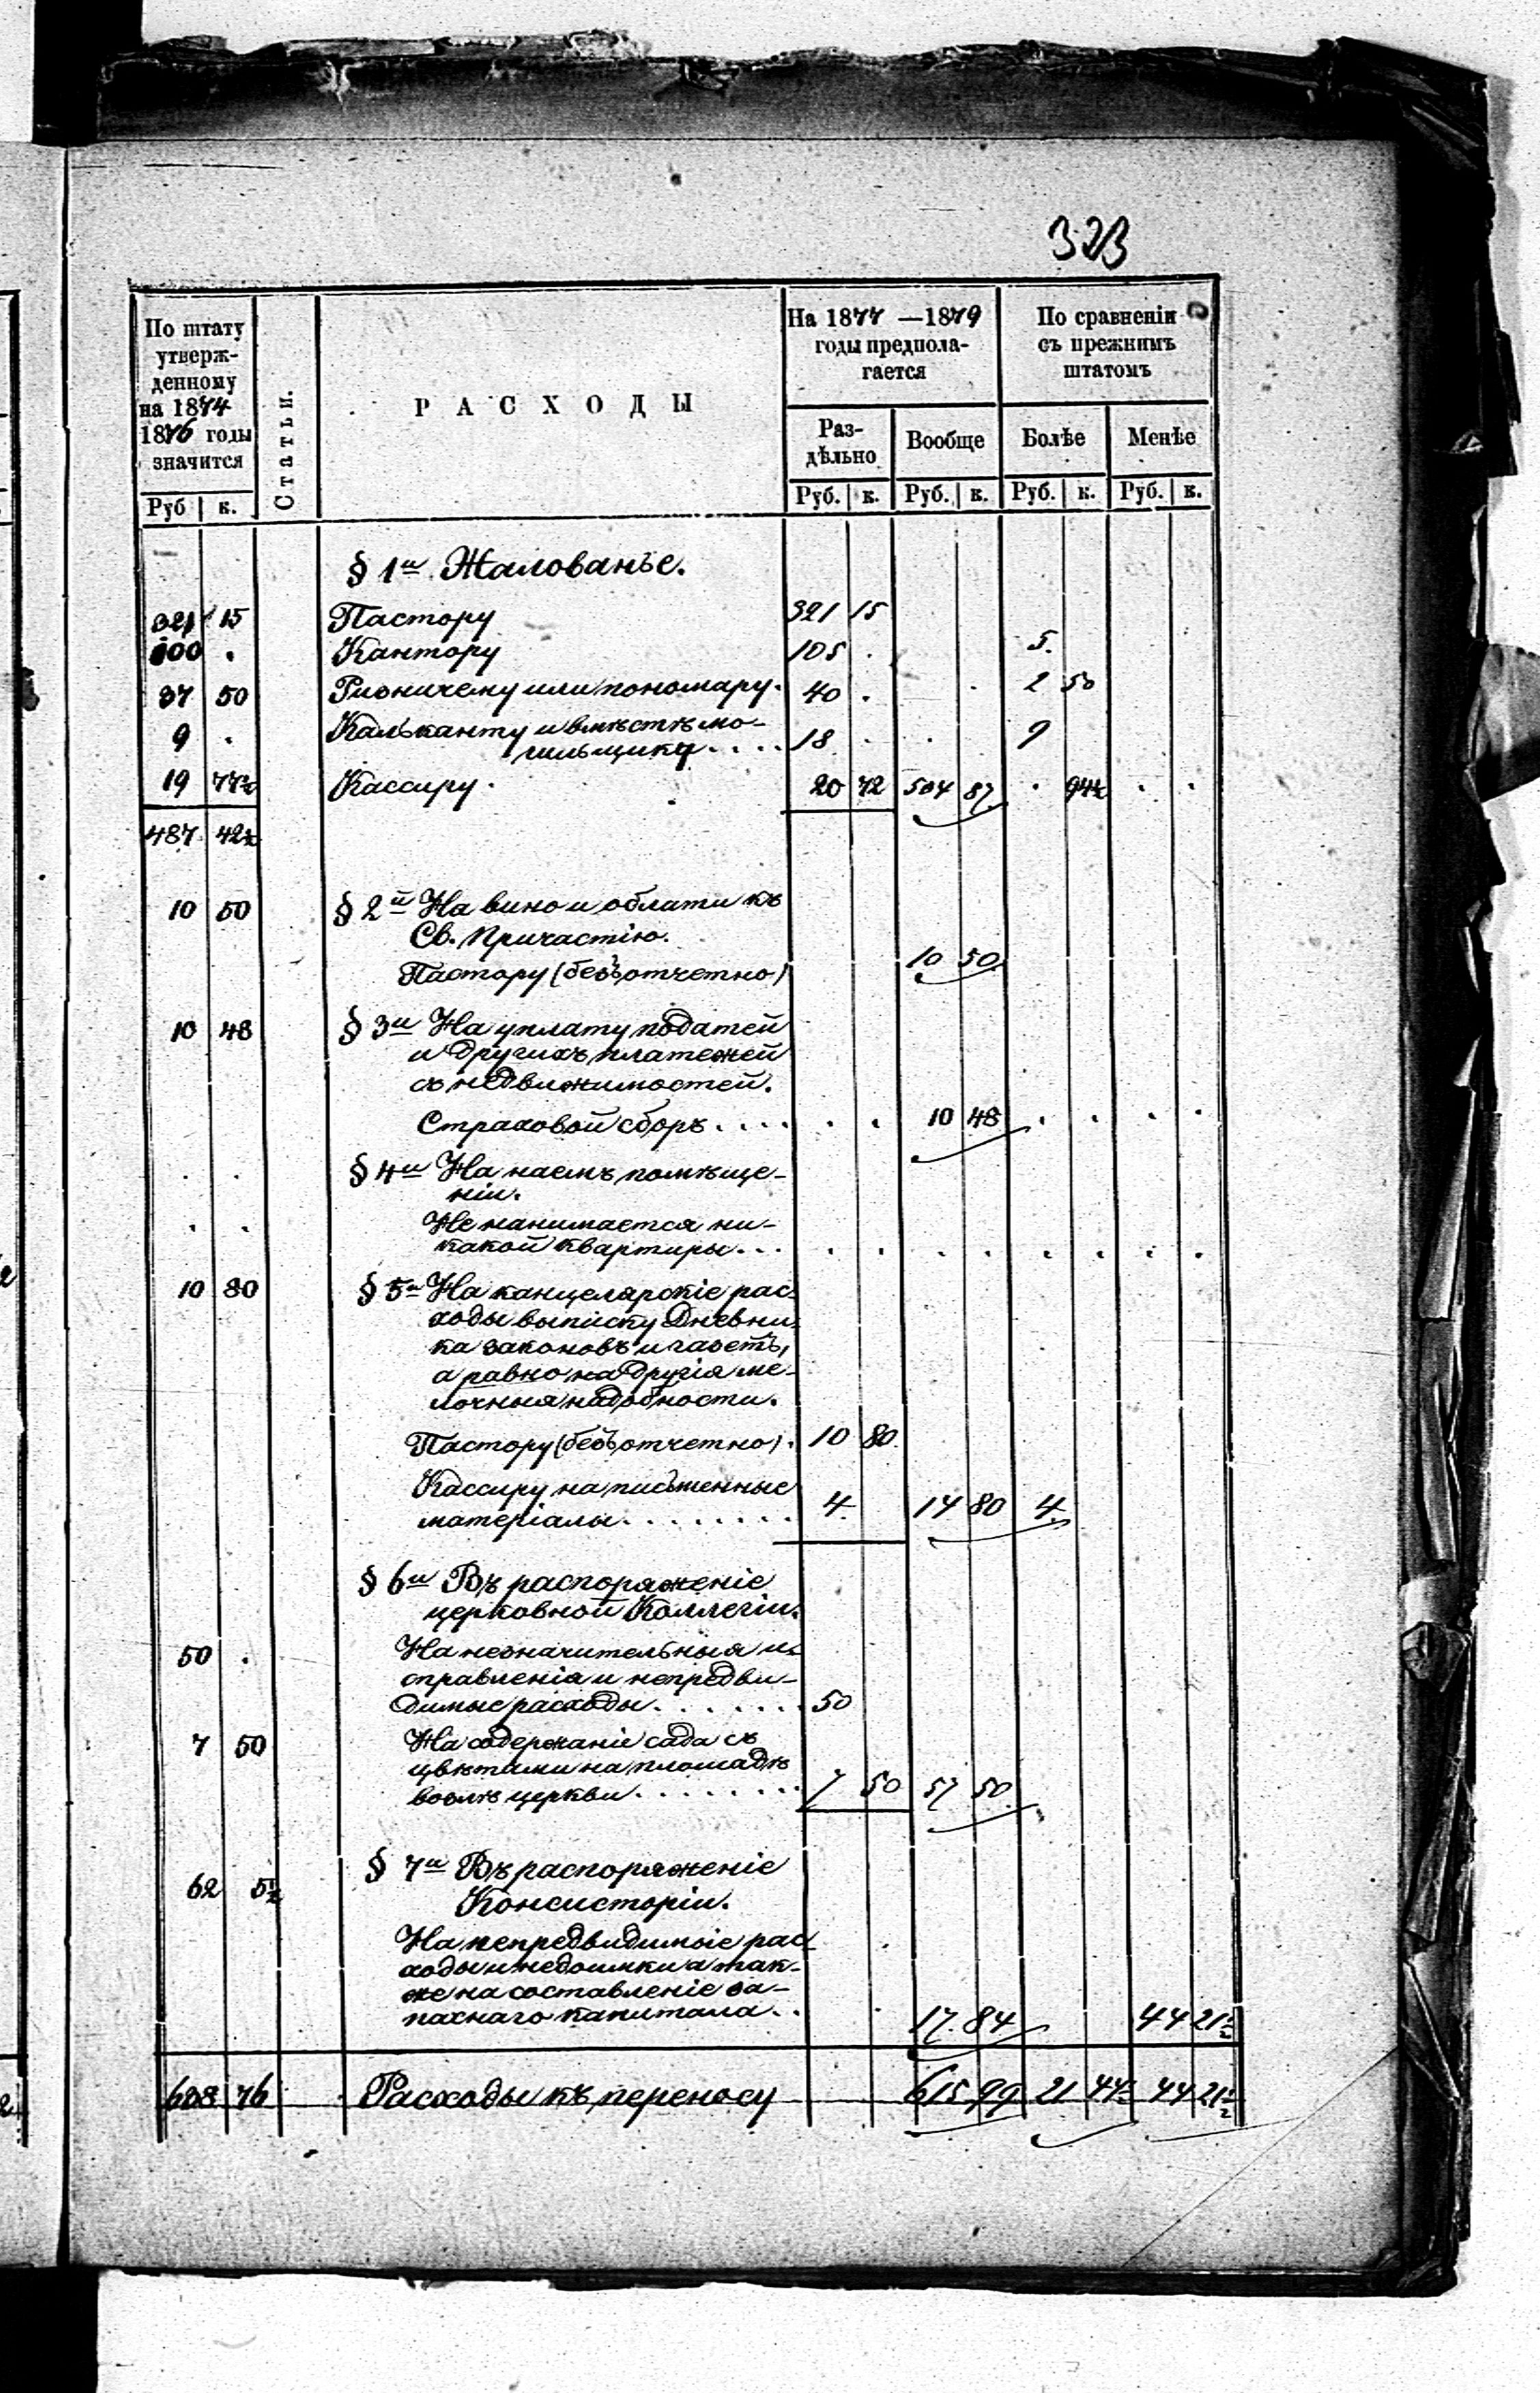 323
По штату утверж-
денному
на 1874
1876 годы
значится
Руб к.
Статьи.
РАСХОДЫ
На 1877 — 1879
годы предпола-
гается
Раз-
дѣльно
Руб. к.
Вообще
Руб. к.
По сравненіи
съ прежнимъ
штатомъ
Болѣе
Руб. к.
Менѣе
Руб. к.
§ 1й Жалованье.
321 15 Пастору 321 15
100 . Кантору 105 . 5.
37 50 Ризничему или пономару. 40 . . 2 50
9 . Кальканту и вмѣстѣ мо-
гильщику.... 18 . . 9
19 77½ Кассиру. 20 72 504 87 . 94½ . .
487 42½
10 50 § 2й На вино и облати къ
Св. Причастію.
Пастору (безъотчетно) 10 50
10 48 § 3й На уплату податей
и другихъ платежей
съ недвижимостей.
Страховой сборъ.... . . 10 48 . . . .
. . § 4й На наемъ помѣще-
ніи.
. . Не нанимается ни-
какой квартиры... . . . . . . . .
10 80 § 5й На канцелярскіе рас-
ходы выписку Дневни-
ка законовъ и газетъ,
а равно на другія ме-
лочныя надобности.
Пастору (безъотчетно). 10 80
Кассиру на письменные
матеріалы........ 4. 14 80 4.
§ 6й Въ распоряженіе
церковной Коллегіи.
50 . На незначительныя ис-
справленія и непредви-
димые расходы....... 50
7 50 На содержаніе сада съ
цвѣтами на площадѣ
возлѣ церкви........ 7 50 57 50
§ 7й Въ распоряженіе
62 5½ Консисторіи.
На непредвидимые рас-
ходы и недоимки а так-
же на составленіе за-
паснаго капитала.. 17. 84 44 21½
608 76 Расходы къ переносу 615 99 21 44½ 44 21½